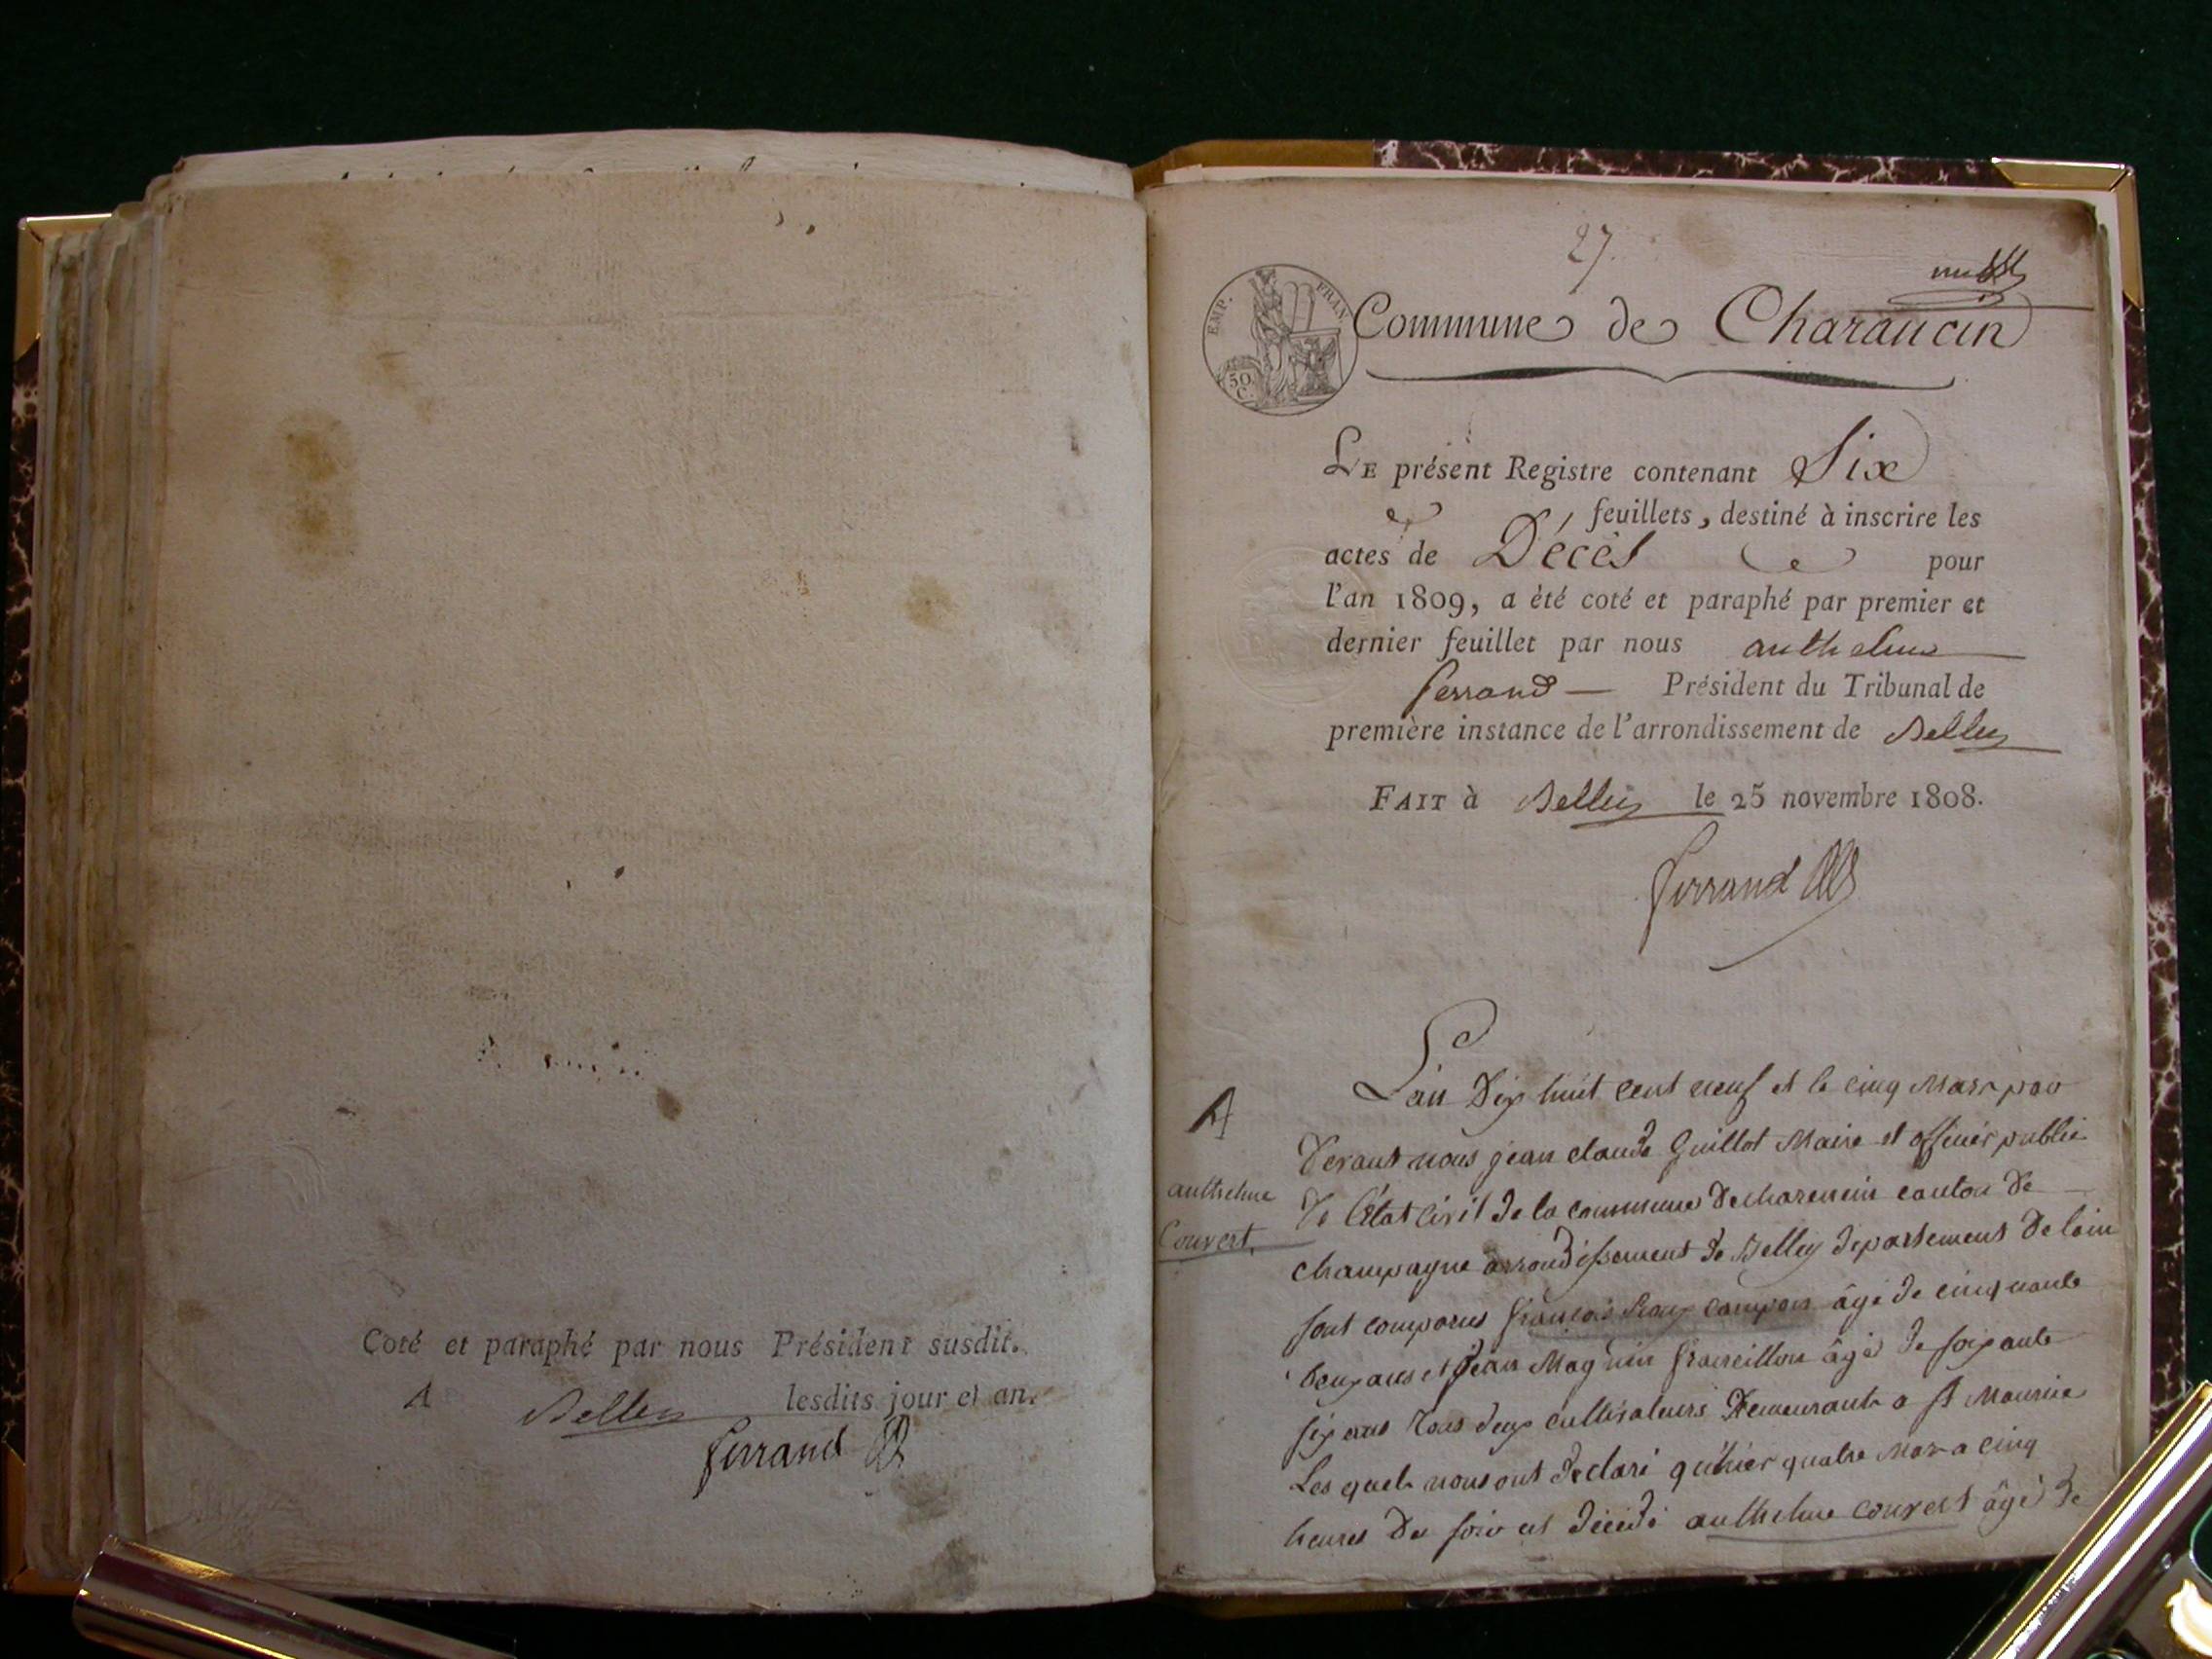 Coté et paraphé par nous Président susdit.
A Belley lesdits jour et an.
ferrand
27.
EMP. FRAN.
50 C.
Commune de Charancin
LE présent Registre contenant Six
feuillets, destiné à inscrire les
actes de Décès pour
l'an 1809, a été coté et paraphé par premier et
dernier feuillet par nous anthelme
ferrand — Président du Tribunal de
première instance de l'arrondissement de Belley
FAIT à Belley le 25 novembre 1808.
ferrand
A
anthelme
Couvert.
L'an Dix huit cent neuf et le cinq Mars par
Devant nous jean claude Guillot Maire et officier public
De l'État Civil de la commune De charancin canton De
champagne arrondissement de Belley departement De lain
sont comparus françois campon âgé de cinquante
Deux ans et Jean Magnin âgé de soixante
six ans Tous deux cultivateurs Demeurants a St Maurice
Les quels nous ont declaré qu'hier quatre Mars a cinq
heures Du soir est décédé anthelme couvert âgé de